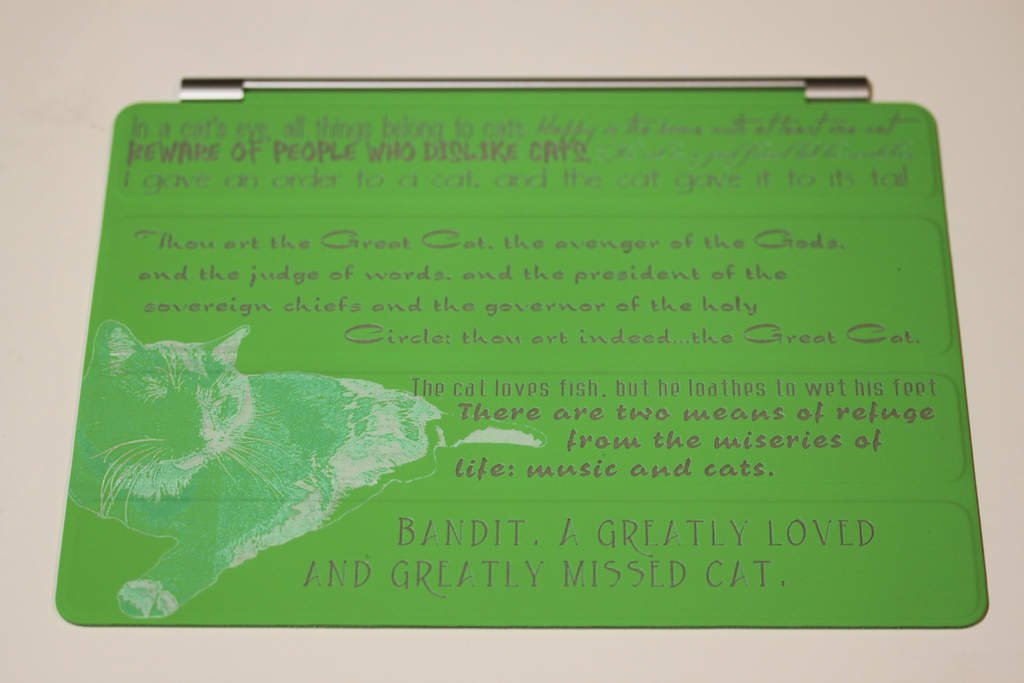 In a cat's eye, all things belong to cats Happy is the home with at least one cat
BEWARE OF PEOPLE WHO DISLIKE CATS.
I gave an order to a cat, and the cat gave it to its tail
Thou art the Great Cat, the avenger of the Gods,
and the judge of words, and the president of the
sovereign chiefs and the governor of the holy
Circle; thou art indeed...the Great Cat.
The cat loves fish, but he loathes to wet his feet
There are two means of refuge
from the miseries of
life: music and cats.
BANDIT. A GREATLY LOVED
AND GREATLY MISSED CAT.